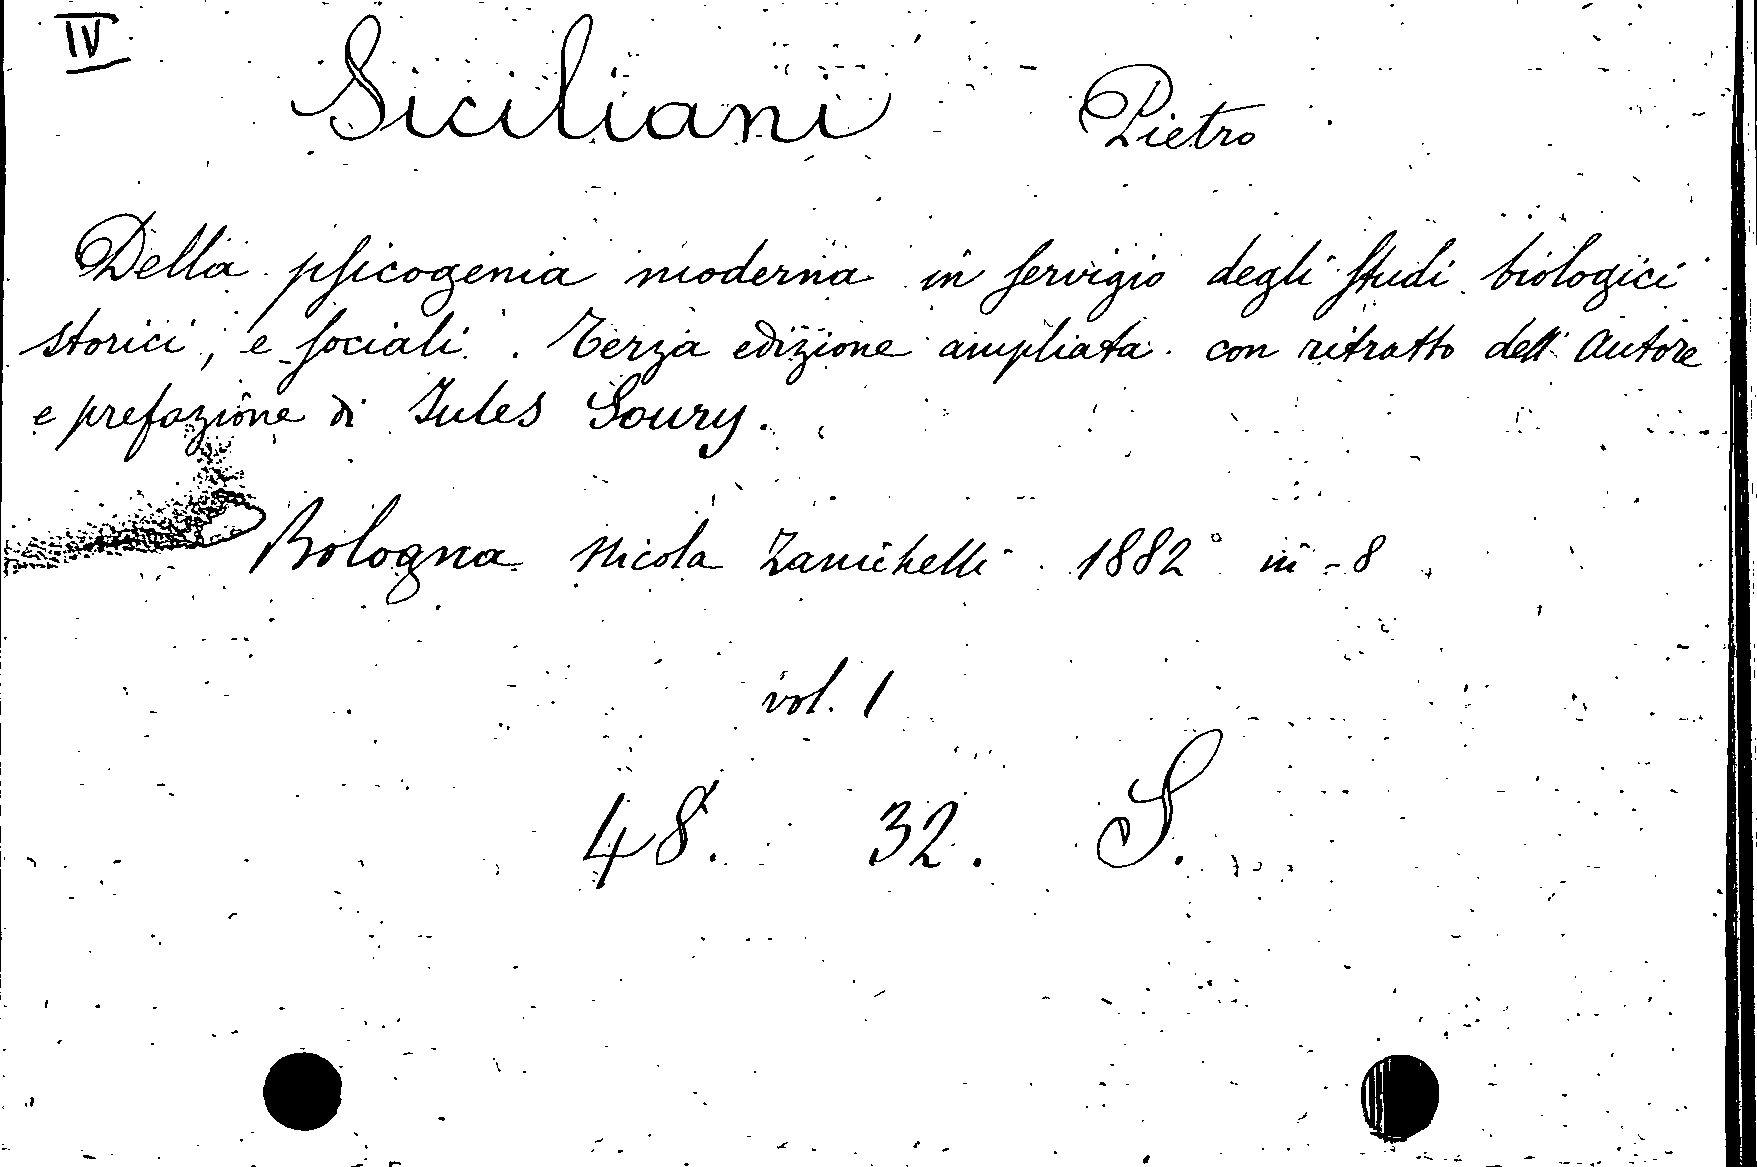 IV
Siciliani Pietro
Della psicogenia moderna in servigio degli studi biologici
storici, e sociali. Terza edizione ampliata con ritratto dell'autore
e prefazione di Jules Soury.
Bologna Nicola Zanichelli 1882 in-8°
vol. 1
48. 32. S.